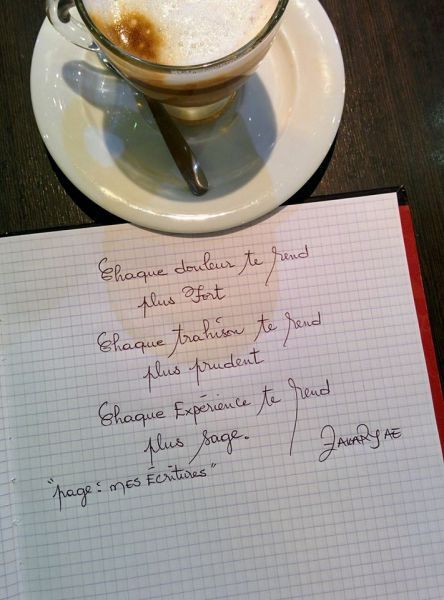 Chaque douleur te rend
plus Fort
Chaque trahison te rend
plus prudent
Chaque Expérience te rend
plus sage.
ZAKARYAE
"page: mes Écritures"